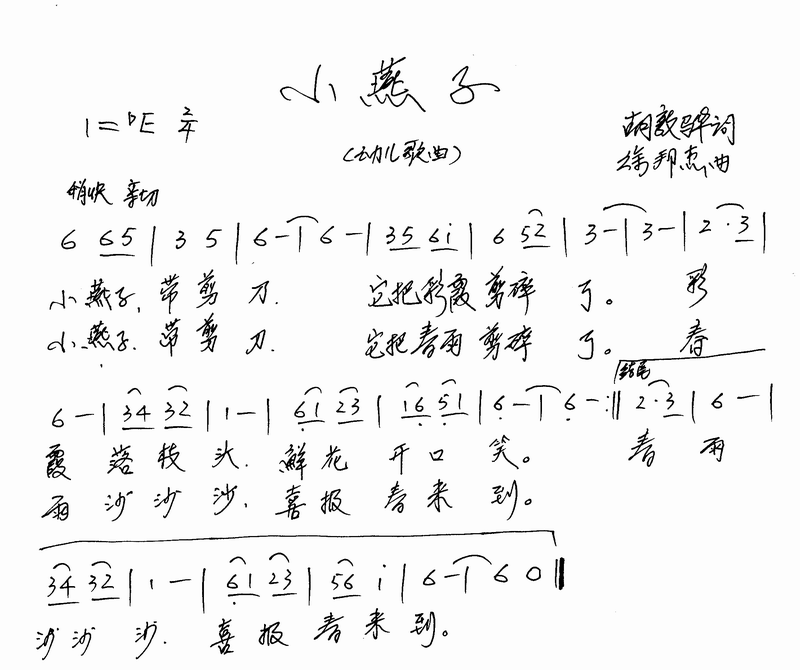 小燕子
1=♭E 2/4
(幼儿歌曲)
胡敦骅词
徐邦杰曲
稍快 亲切
6 65 | 3 5 | 6 - | 6 - | 35 6i | 6 52 | 3 - | 3 - | 2 · 3 |
小燕子,带剪刀. 它把彩霞剪碎了。彩
小燕子.带剪刀. 它把春雨剪碎了。春
结尾
6 - | 34 32 | 1 - | 61 23 | 16 51 | 6 - | 6 - :‖ 2·3 | 6 - |
霞落枝头.鲜花开口笑。春雨
雨沙沙沙.喜报春来到。
34 32 | 1 - | 61 23 | 56 i | 6 - | 6 0 ‖
沙沙沙.喜报春来到。